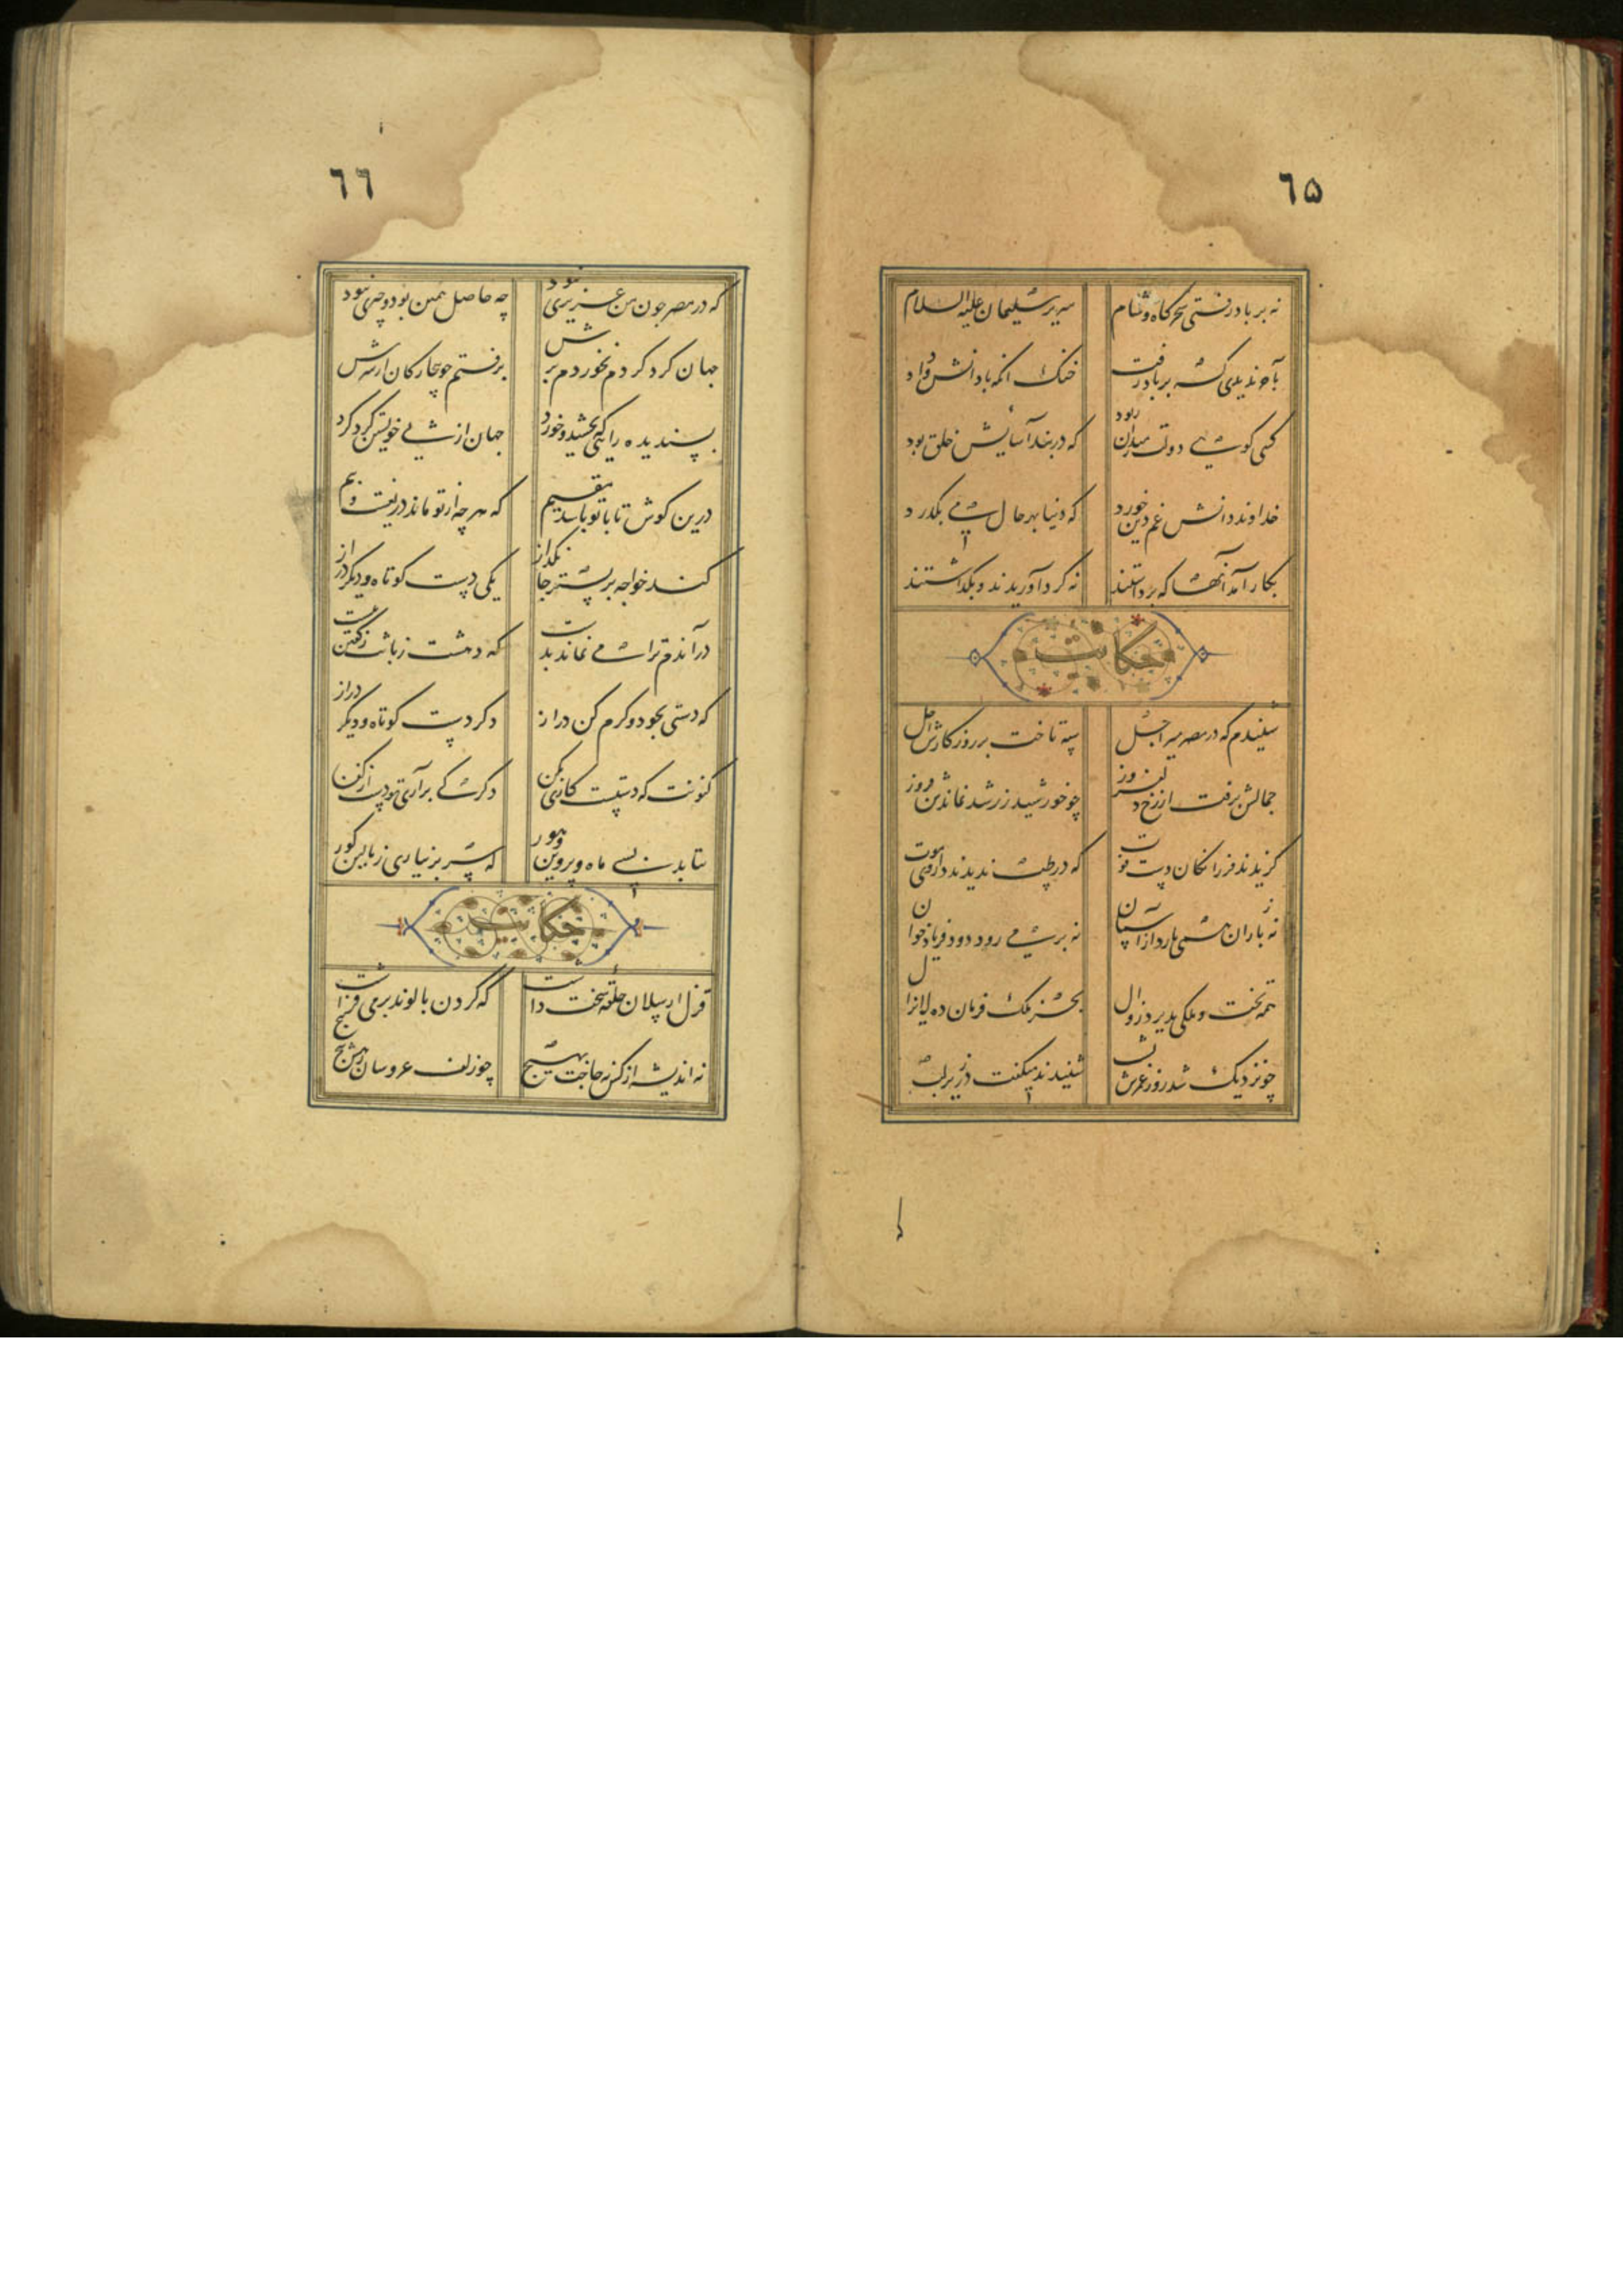 ٦۵
نه بر باد رفتی سحرگاه و شام سریر سلیمان علیه السلام
بآخر ندیدی که بر باد رفت خنک انکه با دانش و داد رفت
کسی کوی دولت ز میدان ربود که در بند آسایش خلق بود
خداوند دانش غم دین خورد که دنیا بهر حال می بگذرد
بکار آمد آنها که برداشتند نه کرد آوریدند و بگذاشتند
حکایت
شنیدم که در مصر میر اجل سپه تاخت بر روزکارش اجل
جمالش برفت از رخ دلفروز چو خورشید زرد شد نماند ز روز
گزیدند فرزانکان دست فوت که در طب ندیدند داروی موت
نه باران همی بارد از آسمان نه بر می رود دود فریاد خوان
همه تخت و ملکی پذیرد زوال بجز ملک فرمان ده لایزال
چو نزدیک شد روز عمرش بشب شنیدند میگفت در زیر لب
٦٦
که در مصر چون من عزیزی نبود چه حاصل همین بود و چیزی نبود
جهان کرد کردم نخوردم برش برفتم چو بیچارکان از سرش
پسندیده رایی که بخشید و خورد جهان از پی خویشتن کرد کرد
درین کوش تا با تو باشد مقیم که هر چه از تو ماند دریغست و بیم
کند خواجه بر بستر جانکداز یکی دست کوتاه و دیگر دراز
در آندم ترا می نماند بدست که دهشت زبانش ز گفتن ببست
که دستی بجود و کرم کن دراز دکر دست کوتاه و دیگر دراز
کنونت که دستست کاری بکن دکر کی برآری تو دست از کفن
بتابد بسی ماه و پروین و هور که سر بر نیاری ز بالین گور
حکایت
قزل ارسلان قلعه سخت داشت که گردن بالوند بر می فراشت
نه اندیشه از کس نه حاجت بهیچ چو زلف عروسان رهش پیچ پیچ